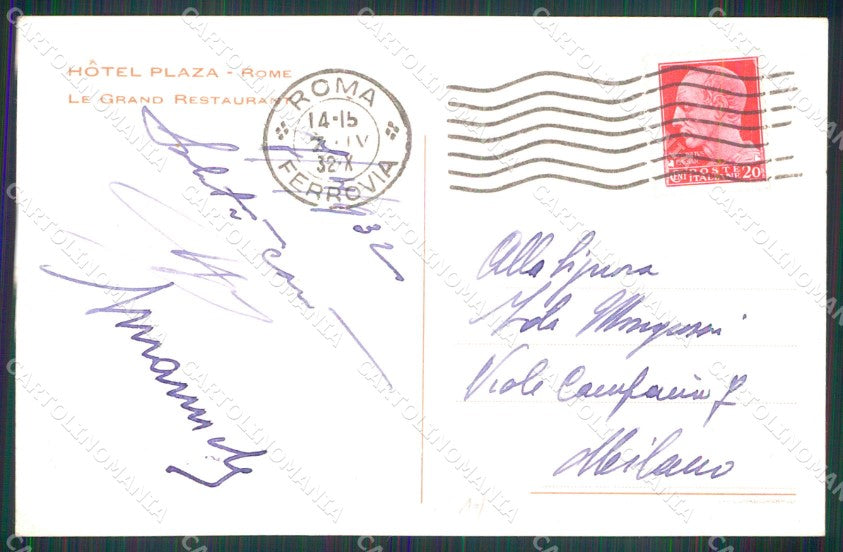 HÔTEL PLAZA - ROME
LE GRAND RESTAURANT
ROMA
14-15
IV
32·X
FERROVIA
POSTE
ITALIANE 20
Saluti
cari
1932
Alla Signora
Viale Campania 7
Milano
CARTOLINOMANIA